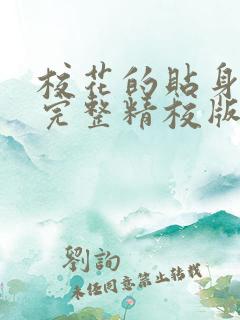 校花的貼身
完整精校版
劉詢
未经同意禁止转载